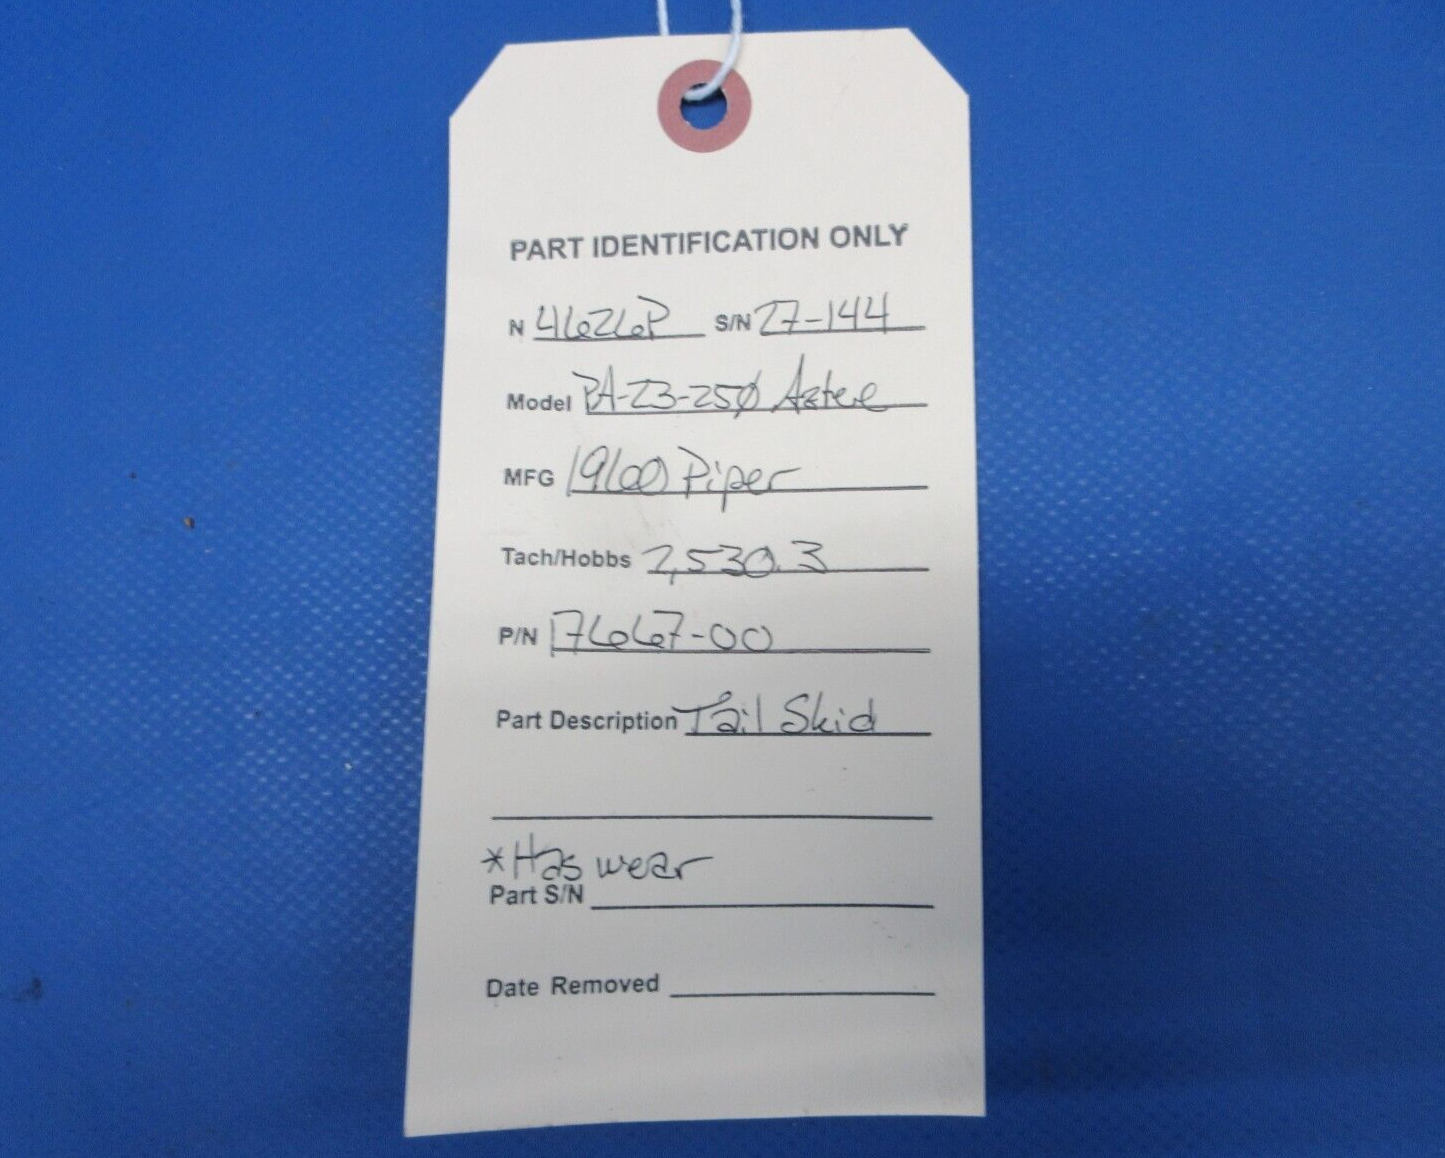 PART IDENTIFICATION ONLY
N 4626P S/N 27-144
Model PA-23-250 Aztec
MFG 1960 Piper
Tach/Hobbs 2,530.3
P/N 17667-00
Part Description Tail Skid
*Has wear
Part S/N
Date Removed